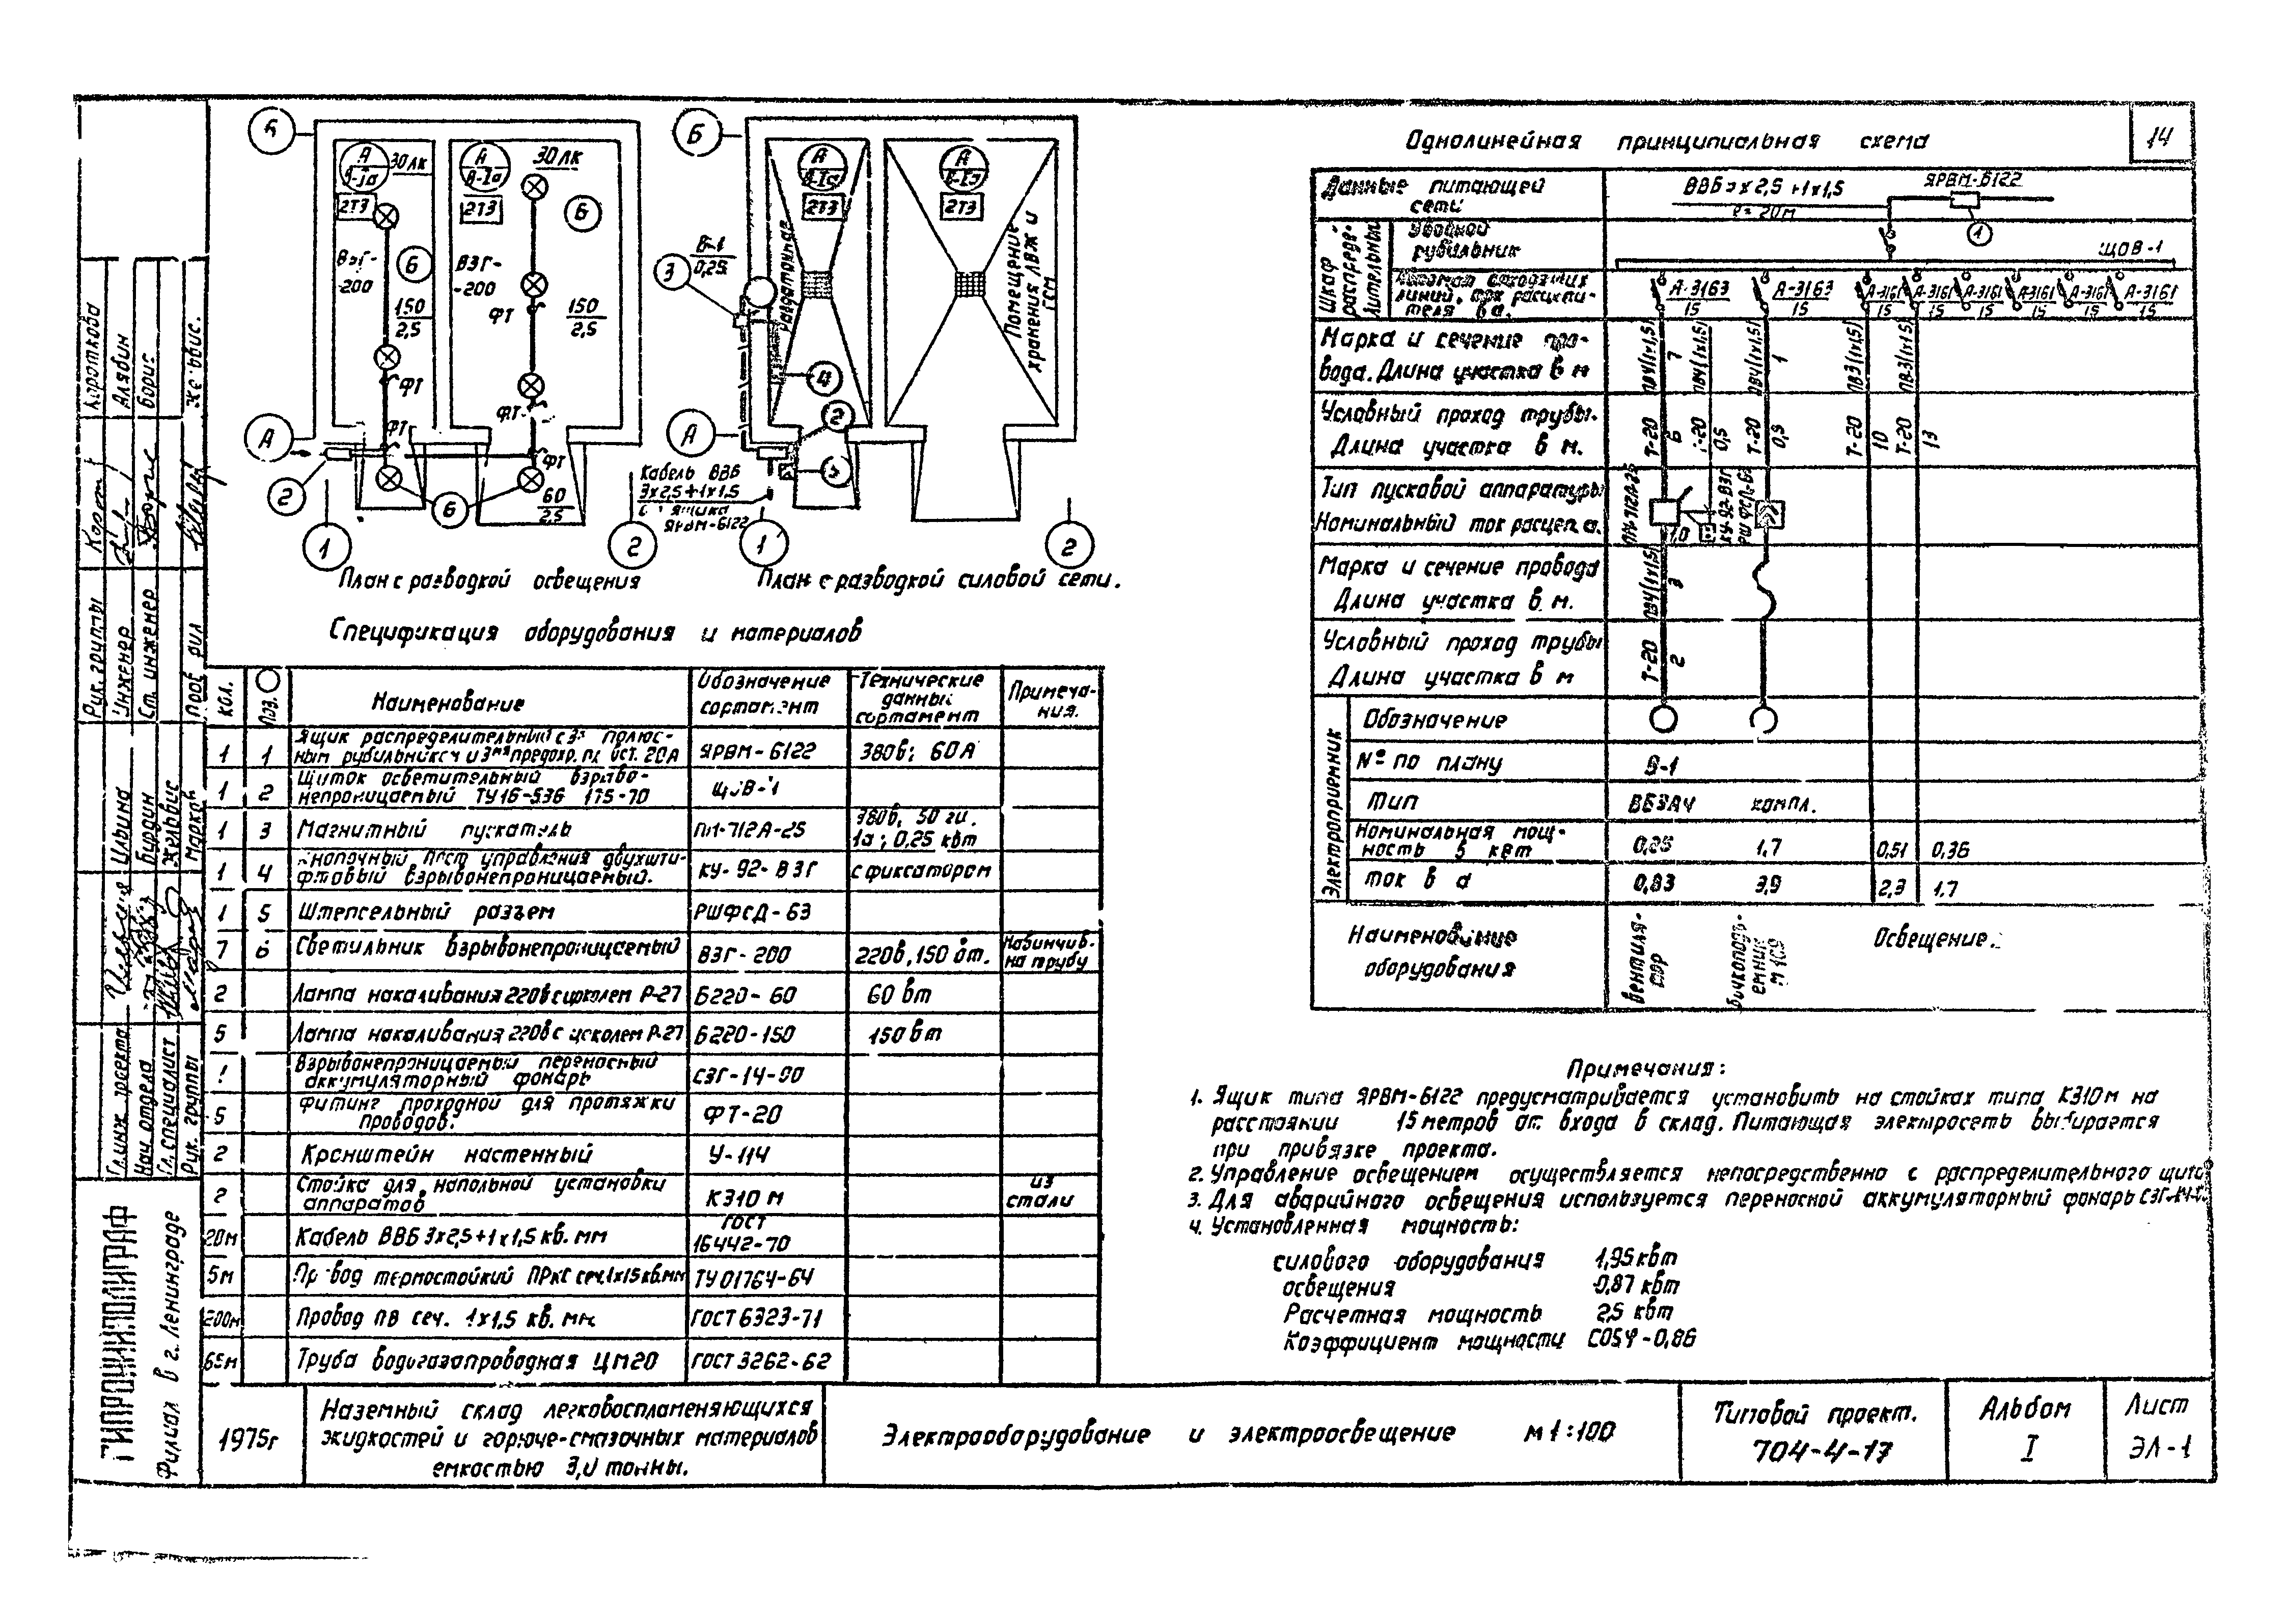 14
Б
А
В-Iа
30 лк
2Т3
А
В-Iа
30 лк
2Т3
6
ВЗГ-
-200
6
150
2,5
ВЗГ-
-200
ФТ
150
2,5
ФТ
ФТ
ФТ
А
ФТ
2
6
60
2,5
1
2
План с разводкой освещения
Б
А
В-Iа
2Т3
А
В-Iа
2Т3
В-1
0,25
3
Раздаточная
Помещение
хранения ЛВЖ и
ГСМ
4
2
А
Кабель ВВБ
3х2,5+1х1,5
ящика
ЯРВМ-6122
1
2
План с разводкой силовой сети.
Спецификация оборудования и материалов
Кол. Поз. Наименование Обозначение сортамент Технические данные сортамент Примеча-ния.
1 1 Ящик распределительный с 3х полюс-
ным рубильником и 3мя предохр. пл. вст. 20А ЯРВМ-6122 380в; 60А
1 2 Щиток осветительный взрыво-
непроницаемый ТУ16-536 175-70 ЩОВ-1
1 3 Магнитный пускатель ПМ-712А-25 380в, 50 гц.
1а; 0,25 квт
1 4 Кнопочный пост управления двухшти-
фтовый взрывонепроницаемый. КУ-92-ВЗГ с фиксатором
1 5 Штепсельный разъем РШФсД-63
7 6 Светильник взрывонепроницаемый ВЗГ-200 220в, 150 вт. Навинчив.
на трубу
2 Лампа накаливания 220в с цоколем Р-27 Б220-60 60 вт
5 Лампа накаливания 220в с цоколем Р-27 Б220-150 150 вт
1 Взрывонепроницаемый переносный
аккумуляторный фонарь СЗГ-14-00
5 Фитинг проходной для протяжки
проводов. ФТ-20
2 Кронштейн настенный У-114
2 Стойка для напольной установки
аппаратов К310м из
стали
20м Кабель ВВБ 3х2,5+1х1,5 кв. мм ГОСТ
16442-70
5м Провод термостойкий ПРКС сеч. 1х1,5 кв. мм ТУ 01764-64
200м Провод ПВ сеч. 1х1,5 кв. мм. ГОСТ 6323-71
65м Труба водогазопроводная ЦМ20 ГОСТ 3262-62
Однолинейная принципиальная схема
Данные питающей
сети
ВВБ 3х2,5 +1х1,5
l=20м
ЯРВМ-6122
1
Шкаф
распреде-
лительный
Вводной
рубильник
ЩОВ-1
Автомат отходящих
линий, ток расцепи-
теля в а.
А-3163
15
А-3163
15
А-3161
15
А-3161
15
А-3161
15
А-3161
15
А-3161
15
А-3161
15
Марка и сечение про-
вода. Длина участка в м
ПВ4(1х1,5)
7
ПВ4(1х1,5)
ПВ4(1х1,5)
1
ПВ3(1х1,5)
ПВ3(1х1,5)
Условный проход трубы.
Длина участка в м.
Т-20
6
Т-20
0,5
Т-20
0,5
Т-20
10
Т-20
13
Тип пусковой аппаратуры
Номинальный ток расцеп. а.
ПМ-712А-25
1,0
КУ-92-ВЗГ
Марка и сечение провода
Длина участка в м.
ПВ4(1х1,5)
3
Условный проход трубы
Длина участка в м
Т-20
2
Электроприемник
Обозначение
№ по плану
В-1
Тип
ВБЗА4 компл.
Номинальная мощ-
ность в квт
0,25 1,7 0,51 0,36
Ток в а
0,83 3,9 2,3 1,7
Наименование
оборудования
Вентиля-
тор
Бочкоподъ-
емник
Освещение.
Примечания:
1. Ящик типа ЯРВМ-6122 предусматривается установить на стойках типа К310м на
расстоянии 15 метров от входа в склад. Питающая электросеть выбирается
при привязке проекта.
2. Управление освещением осуществляется непосредственно с распределительного щита
3. Для аварийного освещения используется переносной аккумуляторный фонарь СЗГ-14-
4. Установленная мощность:
силового оборудования 1,95 квт
освещения 0,87 квт
Расчетная мощность 2,5 квт
Коэффициент мощности COSφ-0,86
Рук. группы Короткова
Инженер Алябин
Ст. инженер Борис
Гл. инж. проекта Ильина
Нач. отдела Бурдин
Гл. специалист Жельвис
Рук. группы Марков
ГИПРОНИИПОЛИГРАФ
Филиал в г. Ленинграде
1975г
Наземный склад легковоспламеняющихся
жидкостей и горюче-смазочных материалов
емкостью 3,0 тонны.
Электрооборудование и электроосвещение м 1:100
Типовой проект.
704-4-17
Альбом
I
Лист
ЭЛ-1